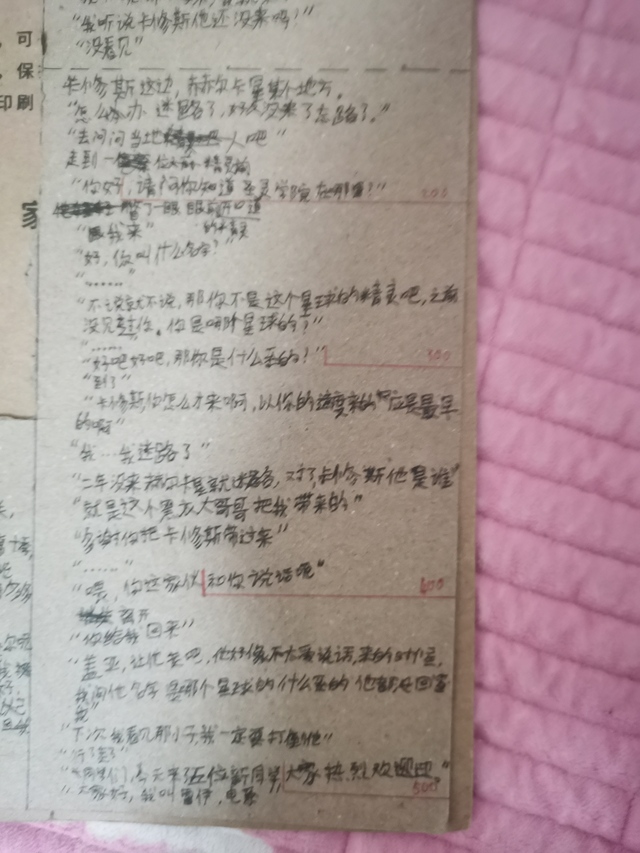 可
保
印刷
家
"我听说卡修斯他还没来吗?"
"没看见"
卡修斯这边,赫尔卡星某个地方。
"怎么办 迷路了,好久没来了忘路了。"
"去问问当地人吧"
走到一位精灵前
"你好,请问你知道 学院在哪里?" 200
瞥了一眼眼前开口道
的精灵
"跟我来"
"好,你叫什么名字?"
"……"
"不说就不说,那你不是这个星球的精灵吧,之前
没见过你。你是哪个星球的?"
"……"
"好吧好吧,那你是什么系的?" 300
"到了"
"卡修斯你怎么才来啊,以你的速度来的 应是最早
的啊"
"我…我迷路了"
"二年没来赫尔卡星就迷路,对了卡修斯他是谁"
"就是这个 大哥哥把我带来的"
"多谢你把卡修斯带过来"
"……"
"喂,你这家伙 和你说话呢" 400
离开
"你给我回来"
"盖亚,让他走吧,他好像不大爱说话,来的时候,
我问他名字 是那个星球的什么系的 他都没回答
我"
"下次我看见那小子我一定要打 他"
"行了 了"
们,今天来了五位新同学,大家热烈欢迎吧" 500
"大家好,我叫雷伊,电系